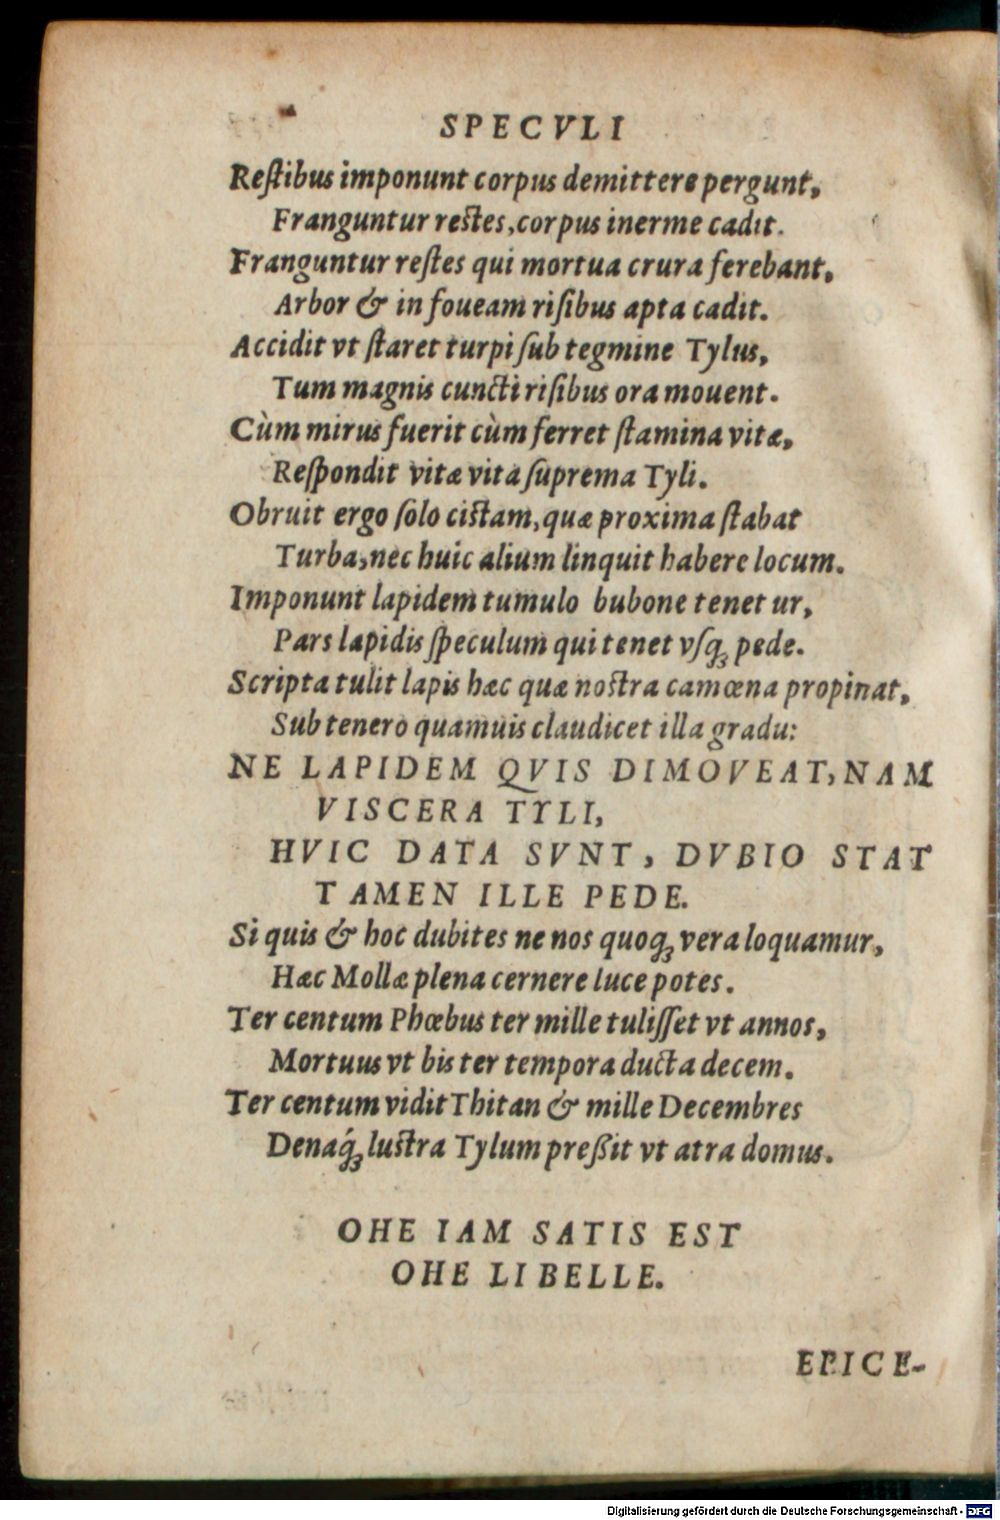 SPECVLI
Reſtibus imponunt corpus demittere pergunt,
Franguntur reſtes, corpus inerme cadit.
Franguntur reſtes qui mortua crura ferebant,
Arbor & in foueam riſibus apta cadit.
Accidit vt ſtaret turpi ſub tegmine Tylus,
Tum magnis cuncti riſibus ora mouent.
Cùm mirus fuerit cùm ferret ſtamina vitæ,
Reſpondit vitæ vita ſuprema Tyli.
Obruit ergo ſolo ciſtam, quæ proxima ſtabat
Turba, nec huic alium linquit habere locum.
Imponunt lapidem tumulo bubone tenetur,
Pars lapidis ſpeculum qui tenet vſqꝫ pede.
Scripta tulit lapis hæc quæ noſtra camœna propinat,
Sub tenero quamuis claudicet illa gradu:
NE LAPIDEM QVIS DIMOVEAT, NAM
VISCERA TYLI,
HVIC DATA SVNT, DVBIO STAT
TAMEN ILLE PEDE.
Si quis & hoc dubites ne nos quoqꝫ vera loquamur,
Hæc Mollæ plena cernere luce potes.
Ter centum Phœbus ter mille tuliſſet vt annos,
Mortuus vt bis ter tempora ducta decem.
Ter centum vidit Thitan & mille Decembres
Denaq́ꝫ luſtra Tylum preßit vt atra domus.
OHE IAM SATIS EST
OHE LIBELLE.
EPICE-
Digitalisierung gefördert durch die Deutsche Forschungsgemeinschaft - DFG